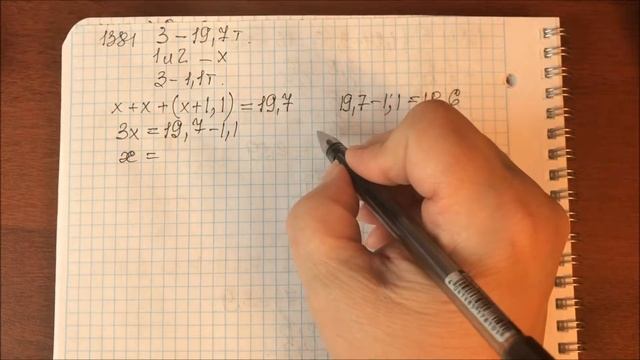 1381 3 – 19,7 т.
1 и 2 – х
3 – 1,1 т.
х + х + (х + 1,1) = 19,7
19,7 – 1,1 = 18,6
3х = 19,7 – 1,1
х =